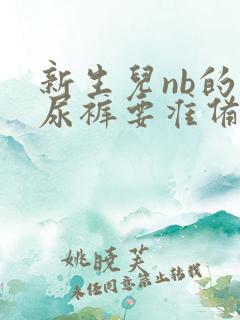 新生兒nb的
尿裤要准备
姚晓芙
未经同意禁止转载